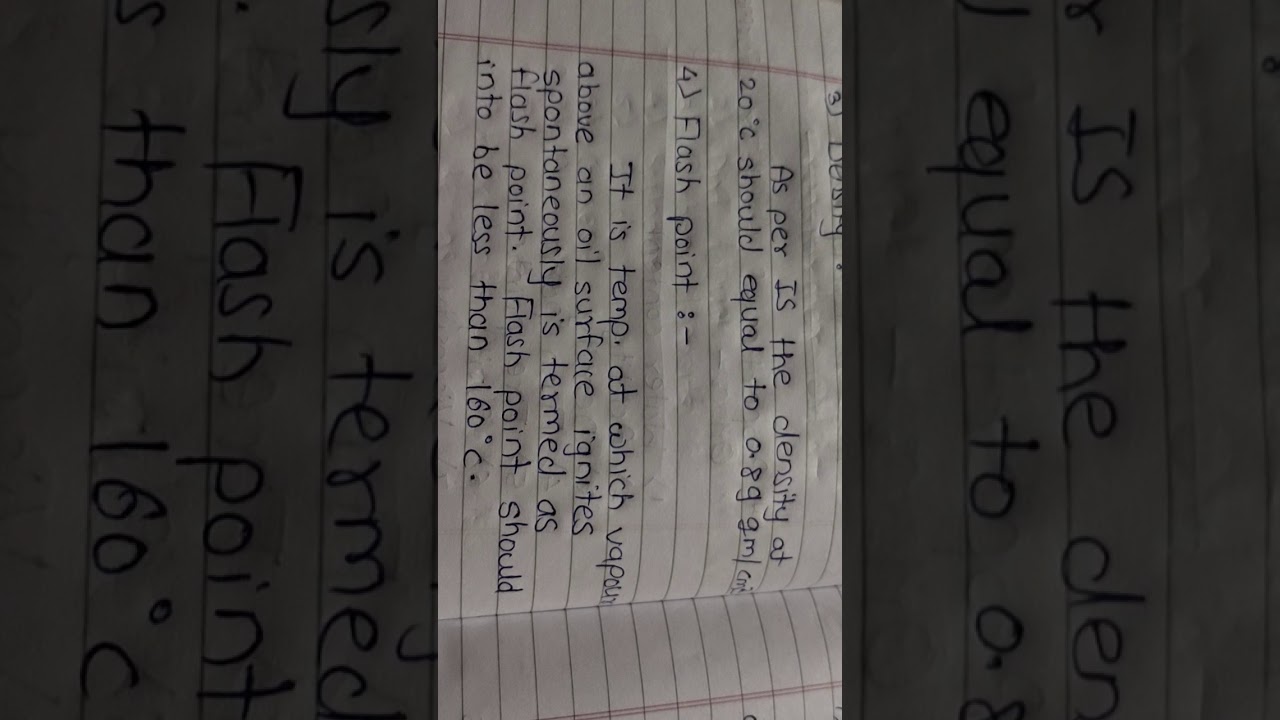 3) Density :
As per IS the density at
20°c should equal to 0.89 gm/cm
4) Flash point :-
It is temp. at which vapour
above an oil surface ignites
spontaneously is termed as
flash point. Flash point should
into be less than 160°c.